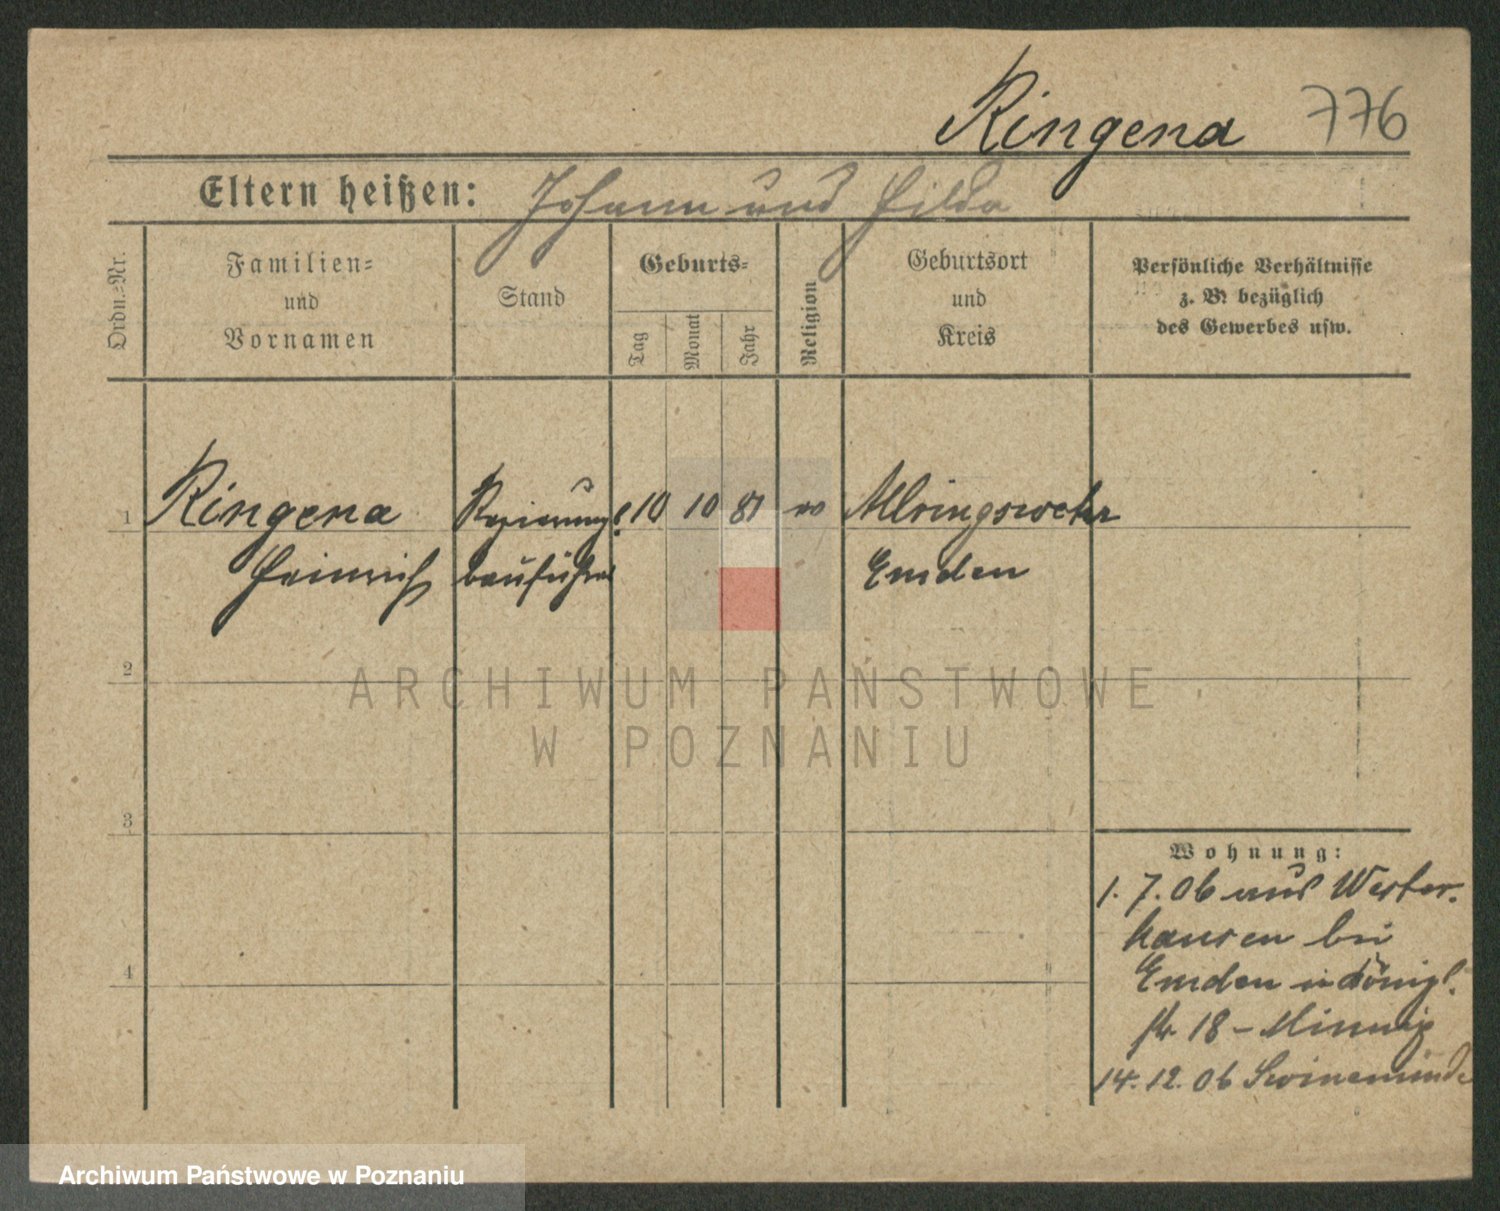 Ringena 776
Eltern heißen: Johann und Hilda
Ordn.-Nr.
Familien-
und
Vornamen
Stand
Geburts-
Tag
Monat
Jahr
Religion
Geburtsort
und
Kreis
Persönliche Verhältnisse
z. B. bezüglich
des Gewerbes usw.
1 Ringena Regierungs 10 10 81 ev
Heinrich bauführer Emden
2
3
4
Wohnung:
1. 7. 06 aus Wester-
hausen bei
Emden in Königl.
str 18
14. 12. 06 Swinemünde
ARCHIWUM PAŃSTWOWE
W POZNANIU
Archiwum Państwowe w Poznaniu